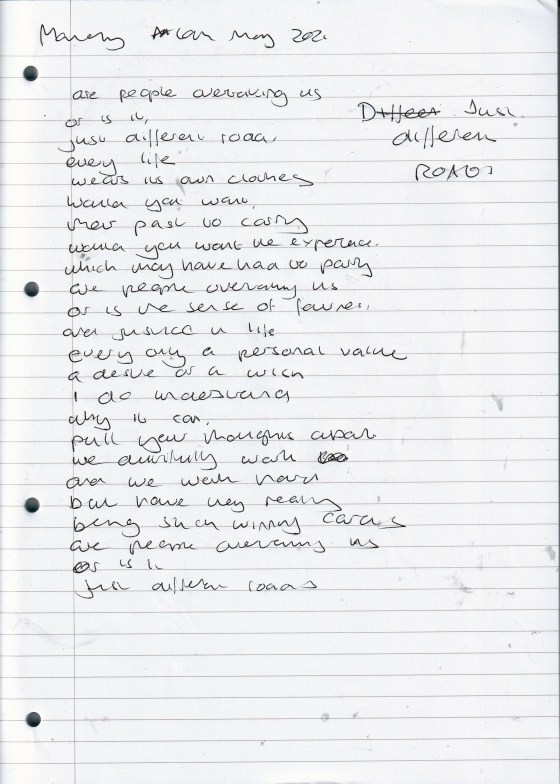 Monday May 202
are people overtaking us
or is it,
Just
just different road,
different
every life
ROADS
wears its own clothes
would you want,
their past to carry
would you want the experience.
which may have had to parry
are people overtaking us
or is the sense of fairness,
and justice in life
every only a personal value
a desire or a wish
I do understand
why it can,
pull your thoughts apart.
we dutifully work
and we work hard
but have they really
being such winning cards
are people overtaking us
or is it
just different roads